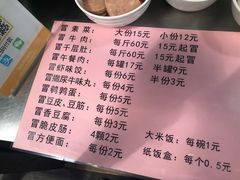 冒素菜: 大份15元 小份12元
冒牛肉: 每斤60元 15元起冒
冒千层肚: 每斤60元 15元起冒
冒午餐肉: 每罐17元 半罐9元
冒虾味饺: 每份6元 半份3元
冒撒尿牛味丸: 每份4元
冒鹌鹑蛋: 每份5元
冒豆皮、豆筋: 每份5元
冒香豆腐: 每份3元
冒脆皮肠: 4颗2元 大米饭: 每碗1元
冒方便面: 每份2元 纸饭盒: 每个0.5元